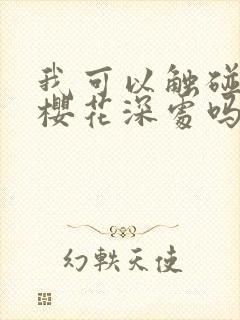 我可以触碰
樱花深处吗
幻軼天使